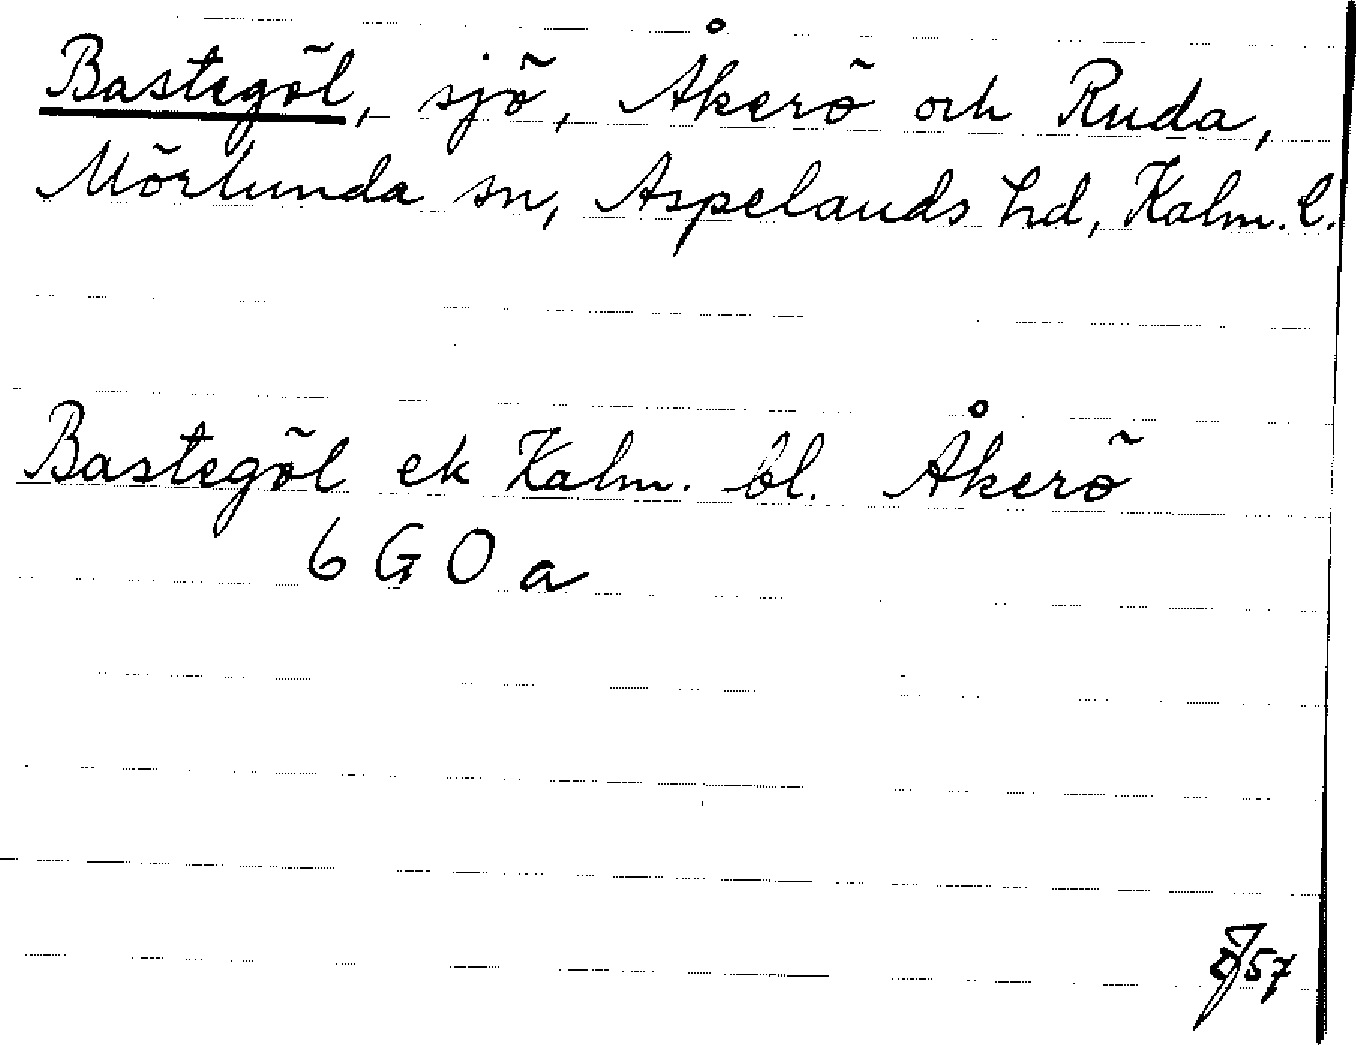 Bastegöl, sjö, Åkerö och Ruda,
Mörlunda sn, Aspelands hd, Kalm. l.
Bastegöl ek Kalm. bl. Åkerö
6 G O a
57